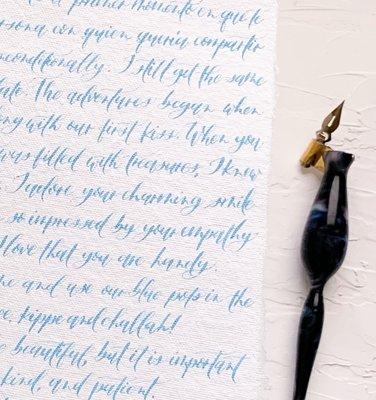 el primer momento en que te
rsona con quien quería compartir
nconditionally. I still get the same
date. The adventures began when
ong with our first kiss. When you
was filled with treasures, I knew
I adore your charming smile
so impressed by your empathy
I love that you are handy.
me and use our blue pops in the
kippe and challah!
e beautiful, but it is important
kind, and patient.